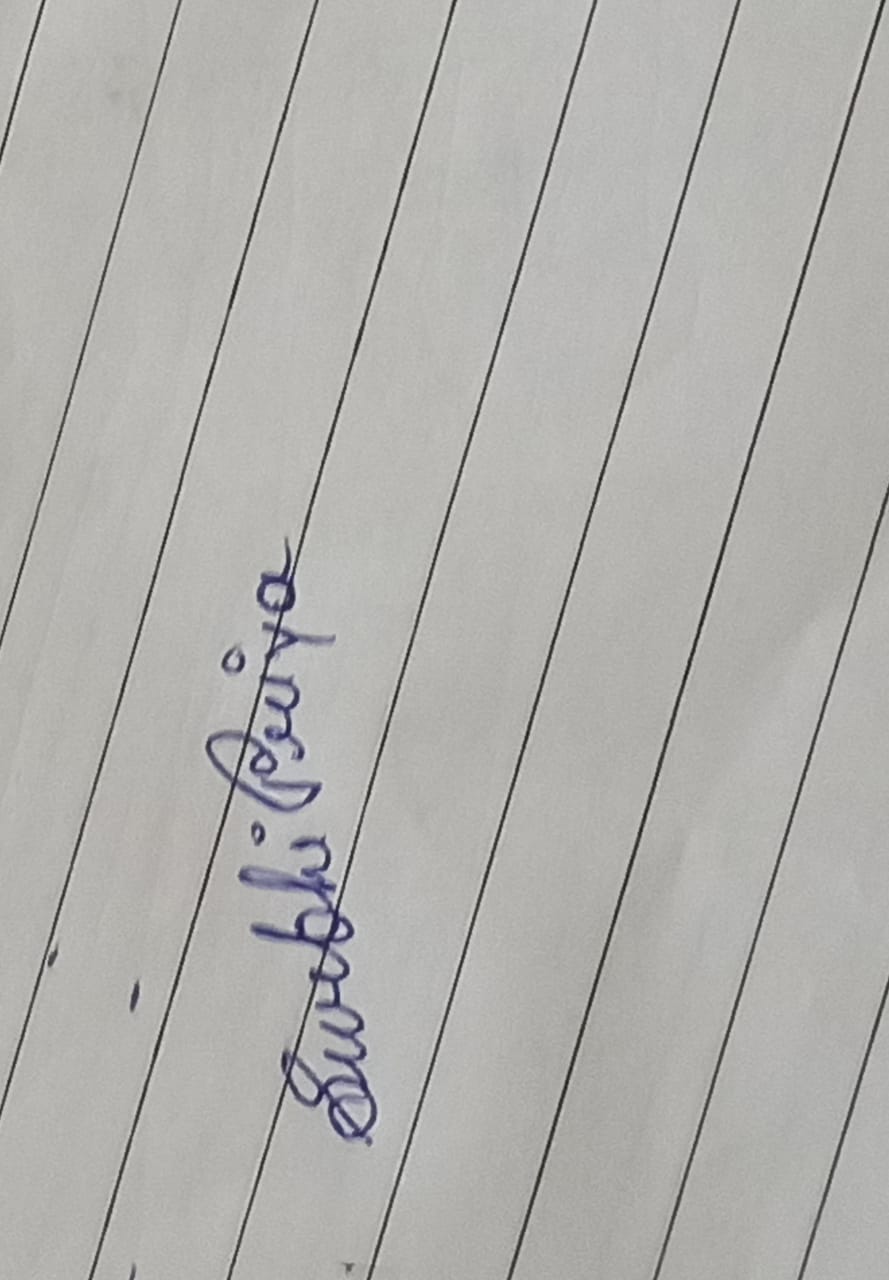 Surbhi Priya